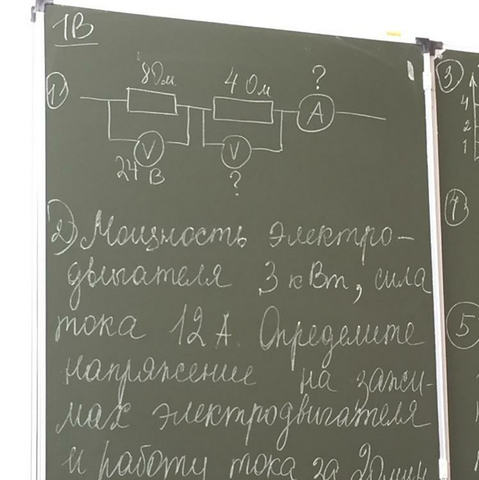 1В
1)
8 Ом 4 Ом ?
A
V V
24 В ?
2) Мощность электро-
двигателя 3 кВт, сила
тока 12 А. Определите
напряжение на зажи-
мах электродвигателя
и работу тока за 20 мин
3)
4
2
1
4)
5